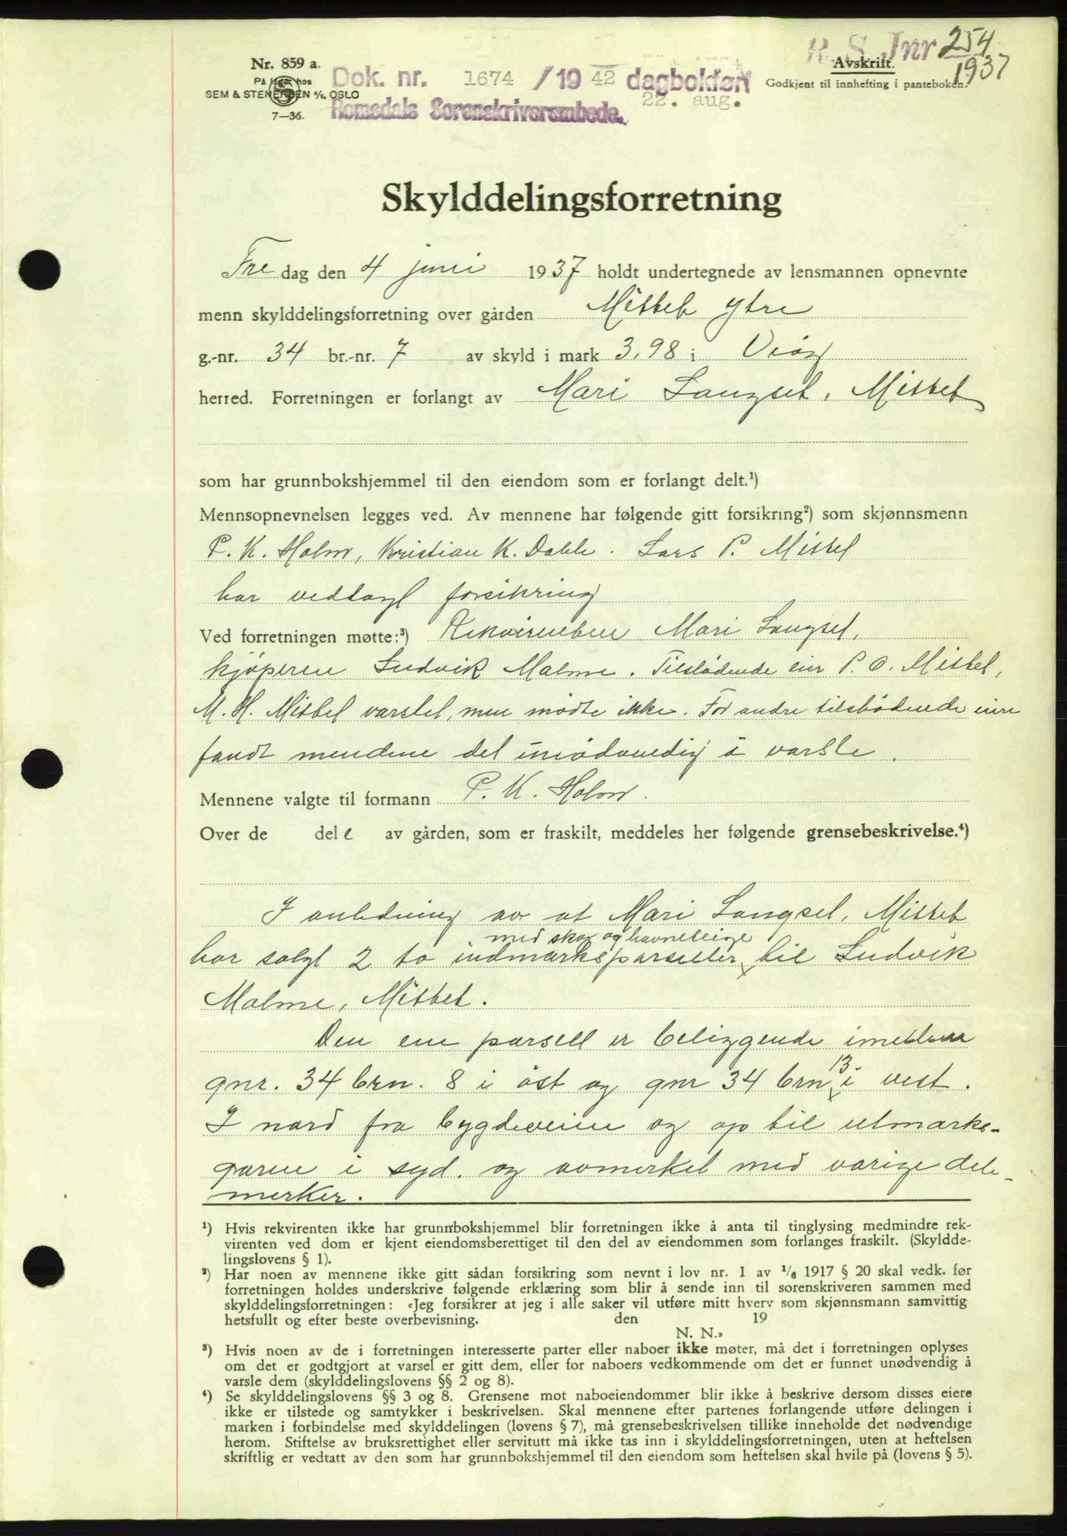 R. S. Jnr 254
1937
Nr. 859 a.
På lager hos
SEM & STENERSEN A/S, OSLO
7—36.
Dok. nr. 1674 / 19 42 dagboken
22. aug.
Romsdals Sorenskriverembede.
Avskrift.
Godkjent til innhefting i panteboken.
Skylddelingsforretning
Fre dag den 4 juni 1937 holdt undertegnede av lensmannen opnevnte
menn skylddelingsforretning over gården Mittet ytre
g.-nr. 34 br.-nr. 7 av skyld i mark 3,98 i Vøy
herred. Forretningen er forlangt av Mari Langset, Mittet
som har grunnbokshjemmel til den eiendom som er forlangt delt.¹)
Mennsopnevnelsen legges ved. Av mennene har følgende gitt forsikring²) som skjønnsmenn
P. K. Holm, Kristian K. Dahle. Lars P. Mittet
har vedtagt forsikring
Ved forretningen møtte:³) Rekvirenten Mari Langset,
kjøperen Ludvik Malme. Tilstødende eier P. O. Mittet,
M. H. Mittet varslet, men møtte ikke. For andre tilstødende eiere
fandt mendene det unødvendig å varsle.
Mennene valgte til formann P. K. Holm.
Over de del e av gården, som er fraskilt, meddeles her følgende grensebeskrivelse.⁴)
I anledning av at Mari Langset, Mittet
med skog og havneteige
har solgt 2 to indmarksparseller til Ludvik
Malme, Mittet.
Den ene parsell er beliggende imellem
gnr. 34 brn. 8 i øst og gnr 34 brn 13 i vest.
I nord fra bygdeveien og op til utmarks-
garen i syd. og avmerket med varige dele-
merker.
¹) Hvis rekvirenten ikke har grunnbokshjemmel blir forretningen ikke å anta til tinglysing medmindre rek-
virenten ved dom er kjent eiendomsberettiget til den del av eiendommen som forlanges fraskilt. (Skyldde-
lingslovens § 1).
²) Har noen av mennene ikke gitt sådan forsikring som nevnt i lov nr. 1 av 1/6 1917 § 20 skal vedk. før
forretningen holdes underskrive følgende erklæring som blir å sende inn til sorenskriveren sammen med
skylddelingsforretningen: «Jeg forsikrer at jeg i alle saker vil utføre mitt hverv som skjønnsmann samvittig
hetsfullt og efter beste overbevisning. den 19
N. N.»
³) Hvis noen av de i forretningen interesserte parter eller naboer ikke møter, må det i forretningen oplyses
om det er godtgjort at varsel er gitt dem, eller for naboers vedkommende om det er funnet unødvendig å
varsle dem (skylddelingslovens §§ 2 og 8).
⁴) Se skylddelingslovens §§ 3 og 8. Grensene mot naboeiendommer blir ikke å beskrive dersom disses eiere
ikke er tilstede og samtykker i beskrivelsen. Skal mennene efter partenes forlangende utføre delingen i
marken i forbindelse med skylddelingen (lovens § 7), må grensebeskrivelsen tillike inneholde det nødvendige
herom. Stiftelse av bruksrettighet eller servitutt må ikke tas inn i skylddelingsforretningen, uten at heftelsen
skriftlig er vedtatt av den som har grunnbokshjemmel til den eiendom som heftelsen skal hvile på (lovens § 5).